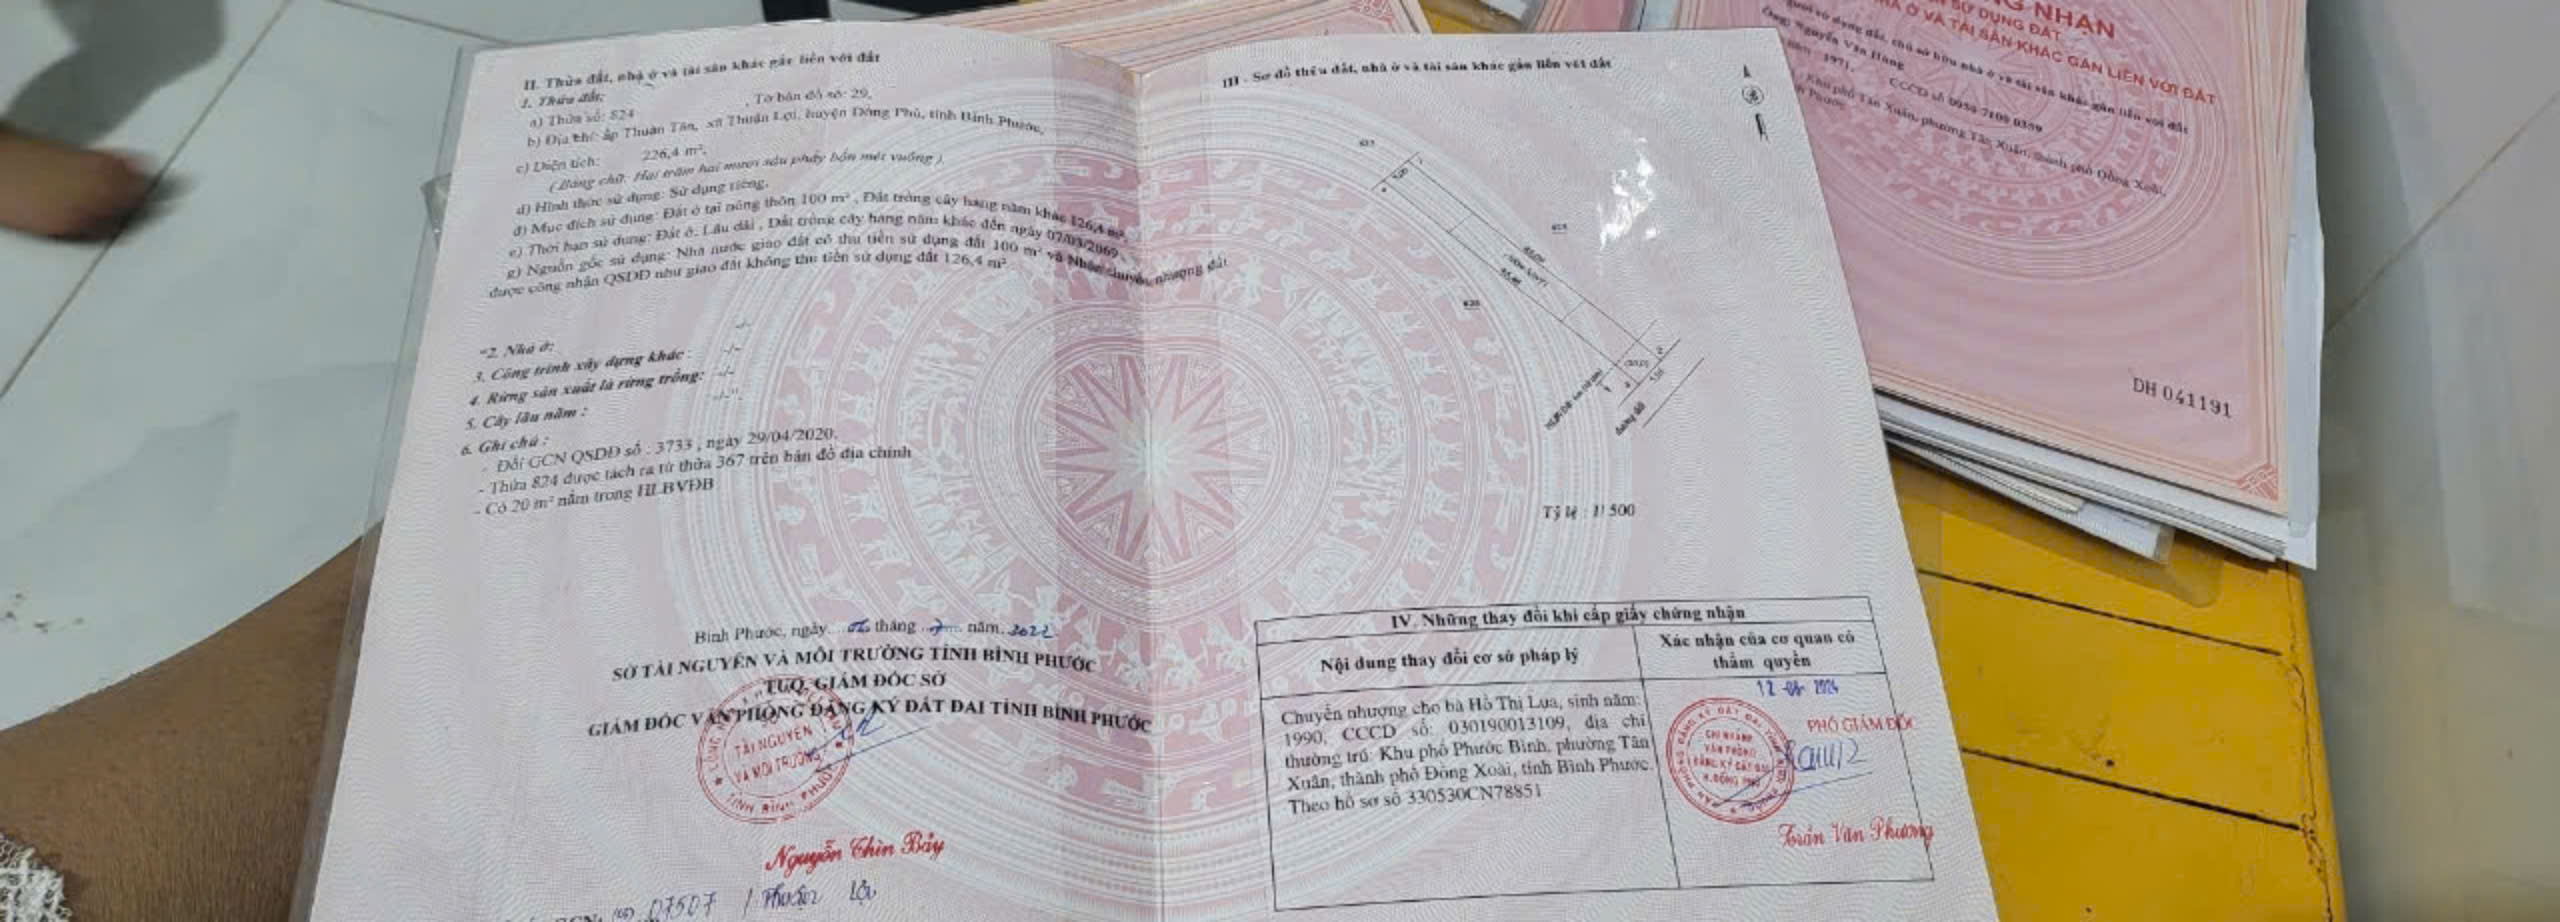 II. Thửa đất, nhà ở và tài sản khác gắn liền với đất
1. Thửa đất:
a) Thửa số: 824 , Tờ bản đồ số: 29,
b) Địa chỉ: ấp Thuận Tân, xã Thuận Lợi, huyện Đồng Phú, tỉnh Bình Phước,
c) Diện tích: 226,4 m²,
( Bằng chữ: Hai trăm hai mươi sáu phẩy bốn mét vuông ),
d) Hình thức sử dụng: Sử dụng riêng,
đ) Mục đích sử dụng: Đất ở tại nông thôn 100 m² , Đất trồng cây hàng năm khác 126,4 m²,
e) Thời hạn sử dụng: Đất ở: Lâu dài , Đất trồng cây hàng năm khác đến ngày 07/03/2069
g) Nguồn gốc sử dụng: Nhà nước giao đất có thu tiền sử dụng đất 100 m² và Nhận chuyển nhượng đất
được công nhận QSDĐ như giao đất không thu tiền sử dụng đất 126,4 m²
2. Nhà ở: -/-
3. Công trình xây dựng khác : -/-
4. Rừng sản xuất là rừng trồng: -/-
5. Cây lâu năm : -/-
6. Ghi chú :
- Đổi GCN QSDĐ số : 3733 , ngày 29/04/2020.
- Thửa 824 được tách ra từ thửa 367 trên bản đồ địa chính
- Có 20 m² nằm trong HLBVĐB
Bình Phước, ngày tháng 7 năm 2022
SỞ TÀI NGUYÊN VÀ MÔI TRƯỜNG TỈNH BÌNH PHƯỚC
TUQ. GIÁM ĐỐC SỞ
GIÁM ĐỐC VĂN PHÒNG ĐĂNG KÝ ĐẤT ĐAI TỈNH BÌNH PHƯỚC
TÀI NGUYÊN
VÀ MÔI TRƯỜNG
TỈNH BÌNH PHƯỚC
Nguyễn Thìn Bảy
07507 / Thuận Lợi
III - Sơ đồ thửa đất, nhà ở và tài sản khác gắn liền với đất
Tỷ lệ : 1/ 500
IV. Những thay đổi khi cấp giấy chứng nhận
Nội dung thay đổi cơ sở pháp lý
Xác nhận của cơ quan có
thẩm quyền
Chuyển nhượng cho bà Hồ Thị Lụa, sinh năm:
1990, CCCD số: 030190013109, địa chỉ
thường trú: Khu phố Phước Bình, phường Tân
Xuân, thành phố Đồng Xoài, tỉnh Bình Phước.
Theo hồ sơ số 330530CN78851
PHÓ GIÁM ĐỐC
CHI NHÁNH
VĂN PHÒNG
ĐĂNG KÝ ĐẤT ĐAI
H. ĐỒNG PHÚ
Trần Văn Phương
NHẬN
SỬ DỤNG ĐẤT
Ở VÀ TÀI SẢN KHÁC GẮN LIỀN VỚI ĐẤT
sử dụng đất, chủ sở hữu nhà ở và tài sản khác gắn liền với đất
Ông: Nguyễn Văn Hùng
1971, CCCD số
Khu phố Tân Xuân, phường Tân Xuân, thành phố Đồng Xoài,
Phước
DH 041191